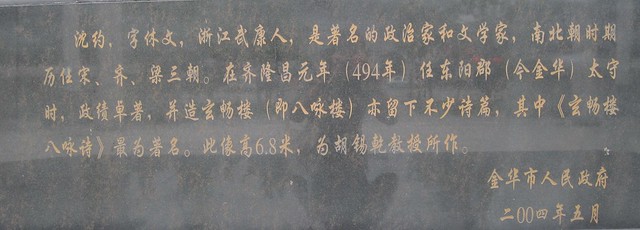 沈约、字休文，浙江武康人，是著名的政治家和文学家，南北朝时期
历任宋、齐、梁三朝。在齐隆昌元年（494年）任东阳郡（今金华）太守
时，政绩卓著，并造玄畅楼（即八咏楼）亦留下不少诗篇，其中《玄畅楼
八咏诗》最为著名。此像高6.8米，为胡锡乾教授所作。
金华市人民政府
二〇〇四年五月